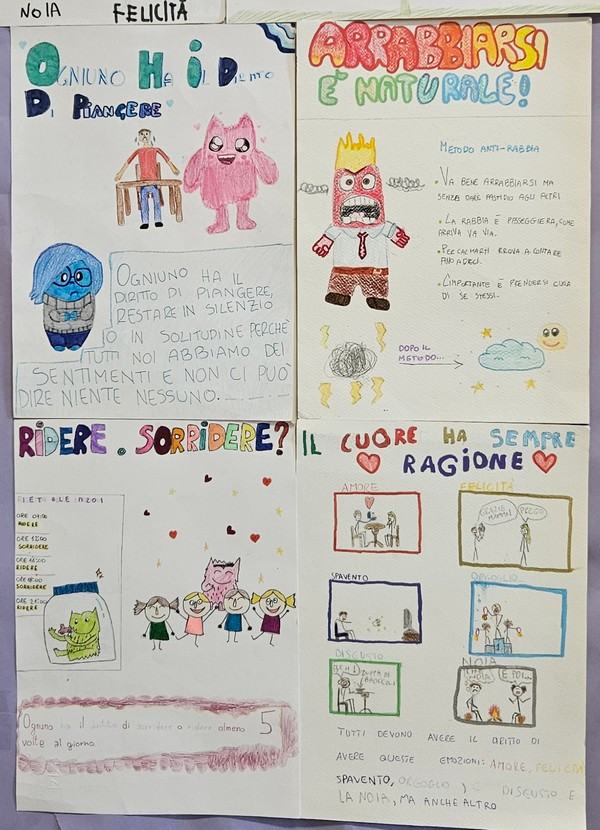 NOIA FELICITÀ
OGNIUNO HA IL DIRITTO
DI PIANGERE
OGNIUNO HA IL
DIRITTO DI PIANGERE,
RESTARE IN SILENZIO
O IN SOLITUDINE PERCHÈ
TUTTI NOI ABBIAMO DEI
SENTIMENTI E NON CI PUÒ
DIRE NIENTE NESSUNO.
ARRABBIARSI
È NATURALE!
METODO ANTI-RABBIA
VA BENE ARRABBIARSI MA
SENZA DARE FASTIDIO AGLI ALTRI
LA RABBIA È PASSEGGIERA, COME
ARRIVA VA VIA.
PER CALMARTI PROVA A CONTARE
FINO A DIECI.
L'IMPORTANTE È PRENDERSI CURA
DI SE STESSI.
DOPO IL
METODO...
RIDERE O SORRIDERE?
ORE
RIDERE
ORE
SORRIDERE
ORE
RIDERE
ORE
SORRIDERE
ORE
RIDERE
Ognuno ha il diritto di sorridere o ridere almeno 5
volte al giorno
IL CUORE HA SEMPRE
RAGIONE
AMORE
FELICITÀ
GRAZIE
MAMMA!
PREGO
SPAVENTO
ORGOGLIO
DISGUSTO
NOIA
CHE
NOIA
E POI...
TUTTI DEVONO AVERE IL DIRITTO DI
AVERE QUESTE EMOZIONI: AMORE, FELICITÀ
SPAVENTO, ORGOGLIO, DISGUSTO E
LA NOIA, MA ANCHE ALTRO